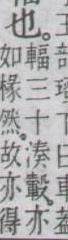 部瑵下曰車蓋
也。
輻三十湊轂。亦
如椽然。故亦得